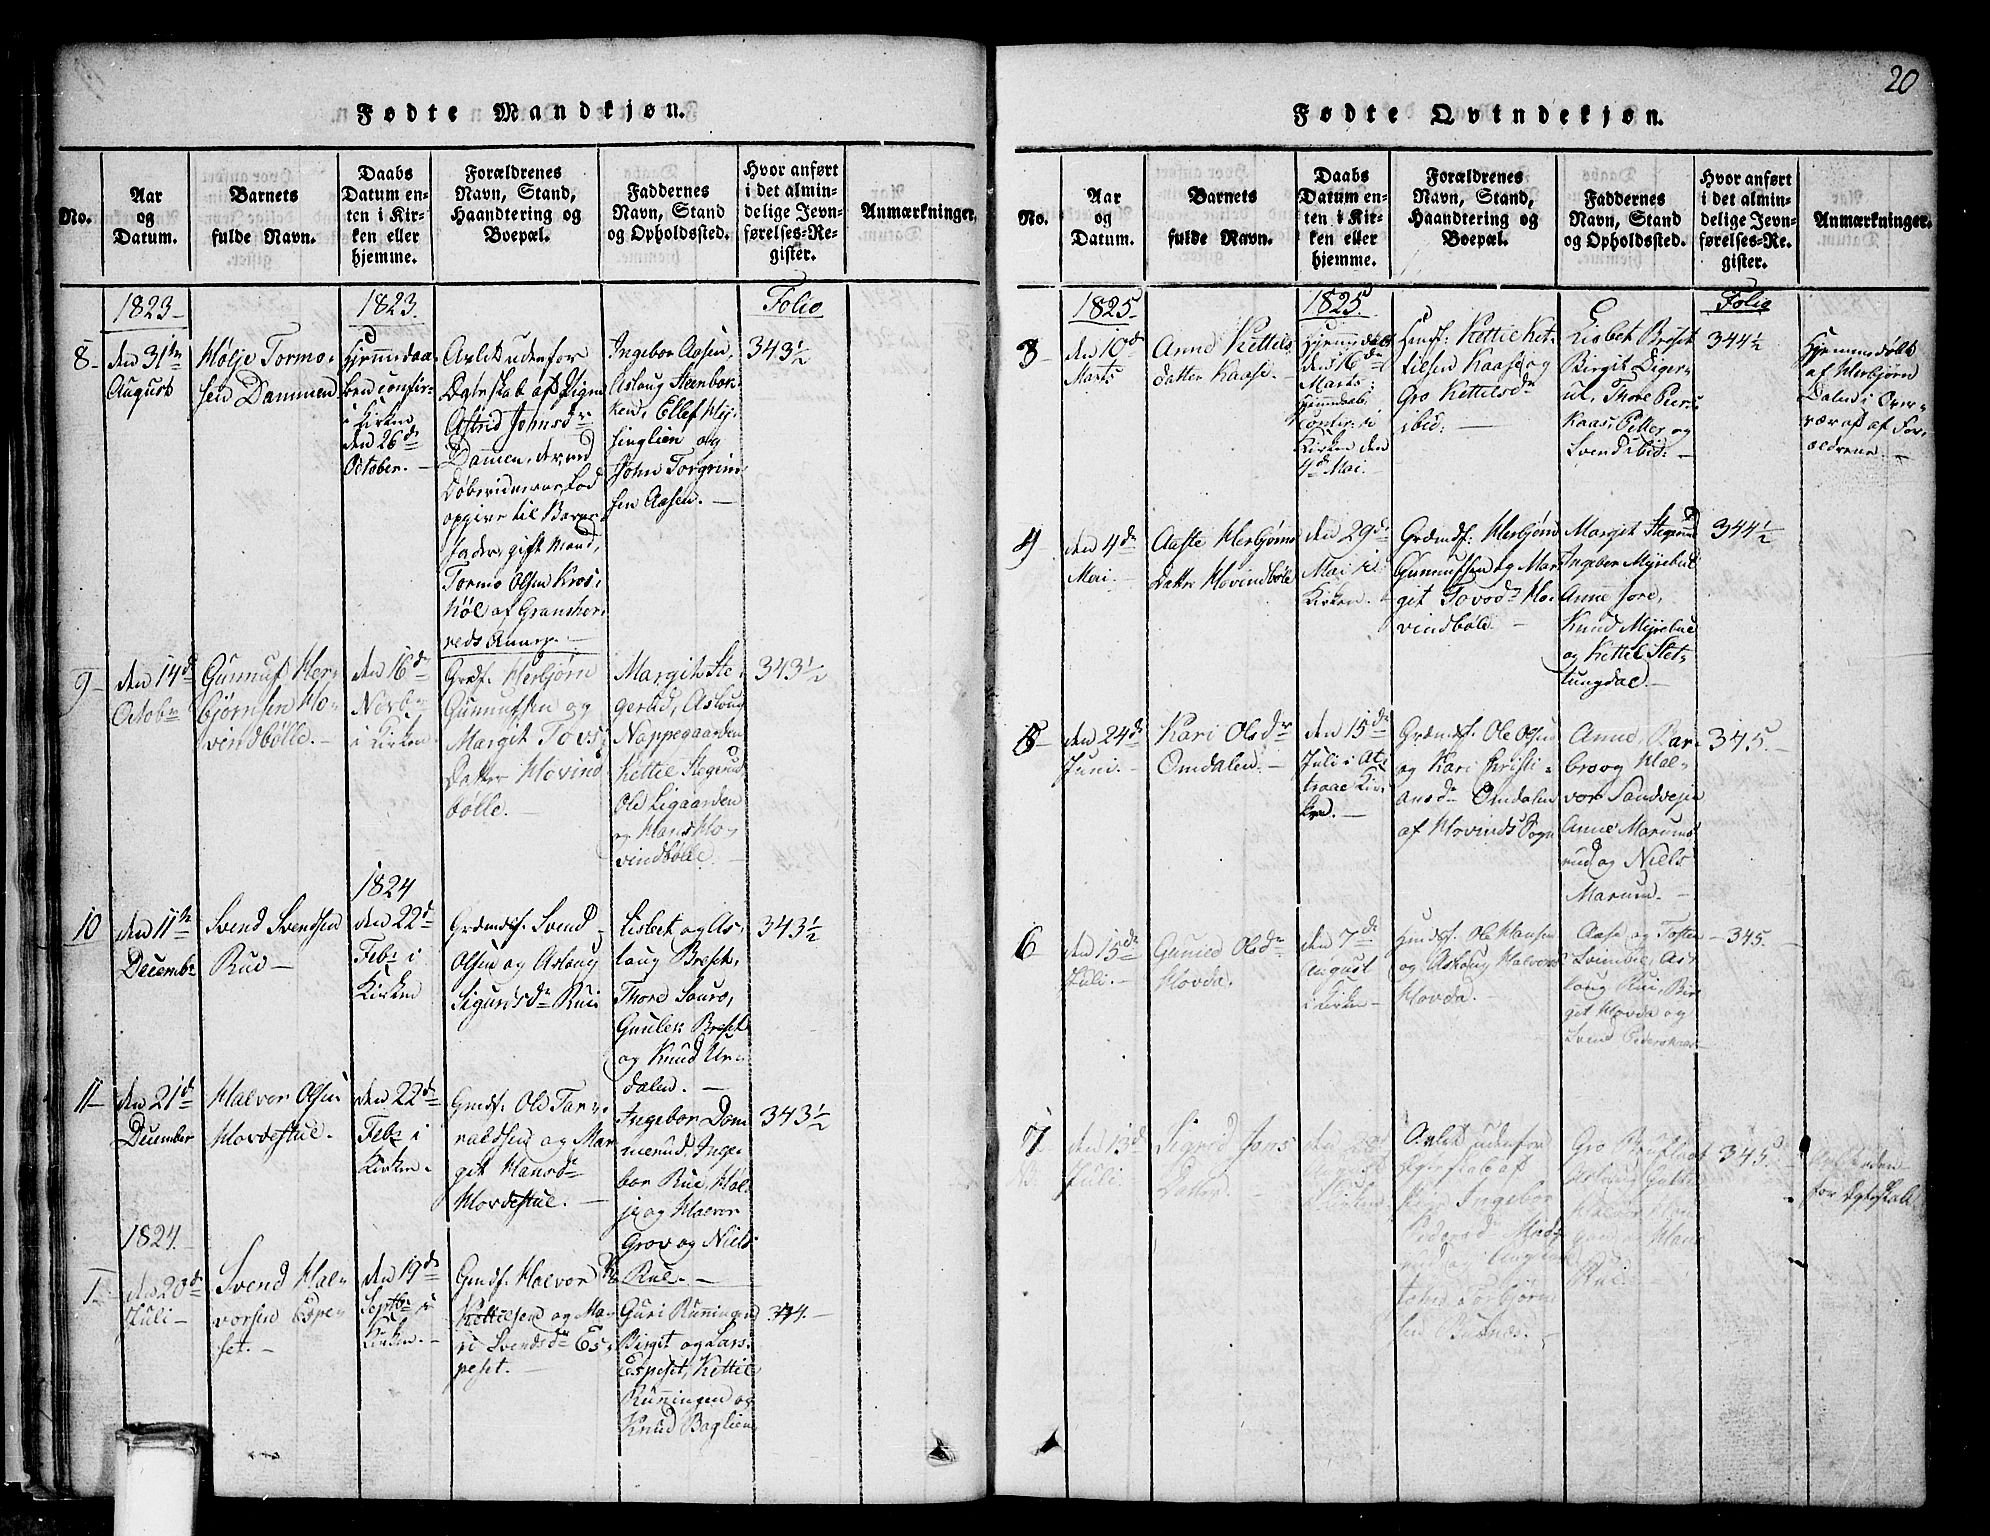 20
Fødte Mandkjøn.
No.
Aar
og
Datum.
Barnets
fulde Navn.
Daabs
Datum en-
ten i Kir-
ken eller
hjemme.
Forældrenes
Navn, Stand,
Haandtering og
Boepæl.
Faddernes
Navn, Stand
og Opholdssted.
Hvor anført
i det almin-
delige Jevn-
førelses-Re-
gister.
Anmærkninger.
1823
1823.
Folio
8-
den 31te
August
Hølje Tormo-
sen Dammen
Hjemmedaa-
ben confir:
i Kirken
den 26de
October. -
Avlet udenfor
Ægteskab af Pigen
Astrid Johnsdr
Dammen, der ved
opgiver til Barne-
fader, gift Mand,
Tormo Olsen Kros-
høl af Gransher-
reds Annex. -
Ingebor Aasen,
Aslaug Steenbor-
ken, Ellef Høj-
singlien og
John Torgrim-
sen Aasen. -
343½
9-
den 14de
Octobr
Gunnuf Her-
bjørnsen Ho-
vindbølle. -
den 16de
Novbr
i Kirken
Grdf. Herbjørn
Gunnufsen og
Margit Tovs-
datter Hovind-
bølle. -
Margit Ste-
gerud, Aslaug
Nappegaarden
Kettil Stegerud
Ole Ligaarden
og Hans Ho-
vindbølle. -
343½
10
den 11te
Decembr
Svend Svendsen
Rud -
1824
den 22de
Febr i
Kirken
Grdmdf. Svend
Olsen og Aslaug
Sigurdsdr Rui
Lisbet og As-
laug Breset,
Thore Sauro,
Gunlek Breset
og Knud Ur-
dalen. -
343½
11-
den 21de
December
Halvor Olsen
Hovdestul. -
den 22de
Febr i
Kirken.
Gmdf. Ole Tar-
raldsen og Mar-
git Hansdr
Hovdestul. -
Ingebor Dom-
merud, Inge-
bor Rue, Høl-
je og Halvor
Grov og Niels
Rue. -
343½
1824.
1-
den 20de
Juli -
Svend Hal-
vorsen Espe-
set. -
den 19de
Septbr i
Kirken. -
Gmdf. Halvor
Kettilsen og Ma-
ri Svendsdr Es-
peset. -
Guri Runningen
Birgit og Lars
Espeset, Kettil
Runningen og
Knud Baglien
344. -
Fødte Qvindekjøn.
No.
Aar
og
Datum.
Barnets
fulde Navn.
Daabs
Datum en-
ten i Kir-
ken eller
hjemme.
Forældrenes
Navn, Stand,
Haandtering og
Boepæl.
Faddernes
Navn, Stand
og Opholdssted.
Hvor anført
i det almin-
delige Jevn-
førelses-Re-
gister.
Anmærkninger.
1825.
1825.
Folio
3-
den 10de
Marts
Anne Kettils
datter Kaase. -
Hjemmedøbt
den 16de
Marts;
Hjemmedaab.
confir: i
Kirken den
4de Mai. -
Huusf. Kettil Ket-
tilsen Kaase og
Gro Kettilsdr
ibid: -
Lisbet Breset
Birgit
Thore
Kaas, Petter og
Svend ibid: -
344½
Hjemmedøbt
af Herbjørn
Dalen i Over-
værelse af For-
ældrene. -
4-
den 4de
Mai. -
Aaste Herbjørns
datter Hovindbøle
den 29de
Mai i
Kirken. -
Grdmdf. Herbjørn
Gunnufsen og Mar
git Tovsdr Ho-
vindbøle. -
Margit Stegerud
Ingebor Myrebue
Anne Jore,
Knud Myrebue
og Kettil Slet-
tungdal. -
344½
5-
den 24de
Juni. -
Kari Olsdr
Omdalen. -
den 15de
Juli i At-
traae Kir-
ken. -
Grdmdf. Ole Olsen
og Kari Christi-
ansdr Omdalen
af Hovinds Sogn
Anne, Bar-
bro og Hal-
vor Sandvejen
Anne Marum-
rud og Niels
Marum. -
345. -
6-
den 15de
Juli. -
Gunild Olsdr
Hovda. -
den 7de
August
i Kirken -
Huusf. Ole Hansen
og Aslaug Halvorsd
Hovda. -
Aase og Tosten
Svinbie, As-
laug Rue, Bir-
git Hovda og
Svend
- 345. -
7
den 13de
Juli. -
Sigrid Jons
datter
Avlet udenfor
Ægteskab af
Pige Ingebor
Pedersdr
og Ungkarl
John Torbjørn
sen Busnæs. -
Gro
Aslaug
Halvor
og Hans
Rui. -
345.
Avlet uden-
for Ægteskab.